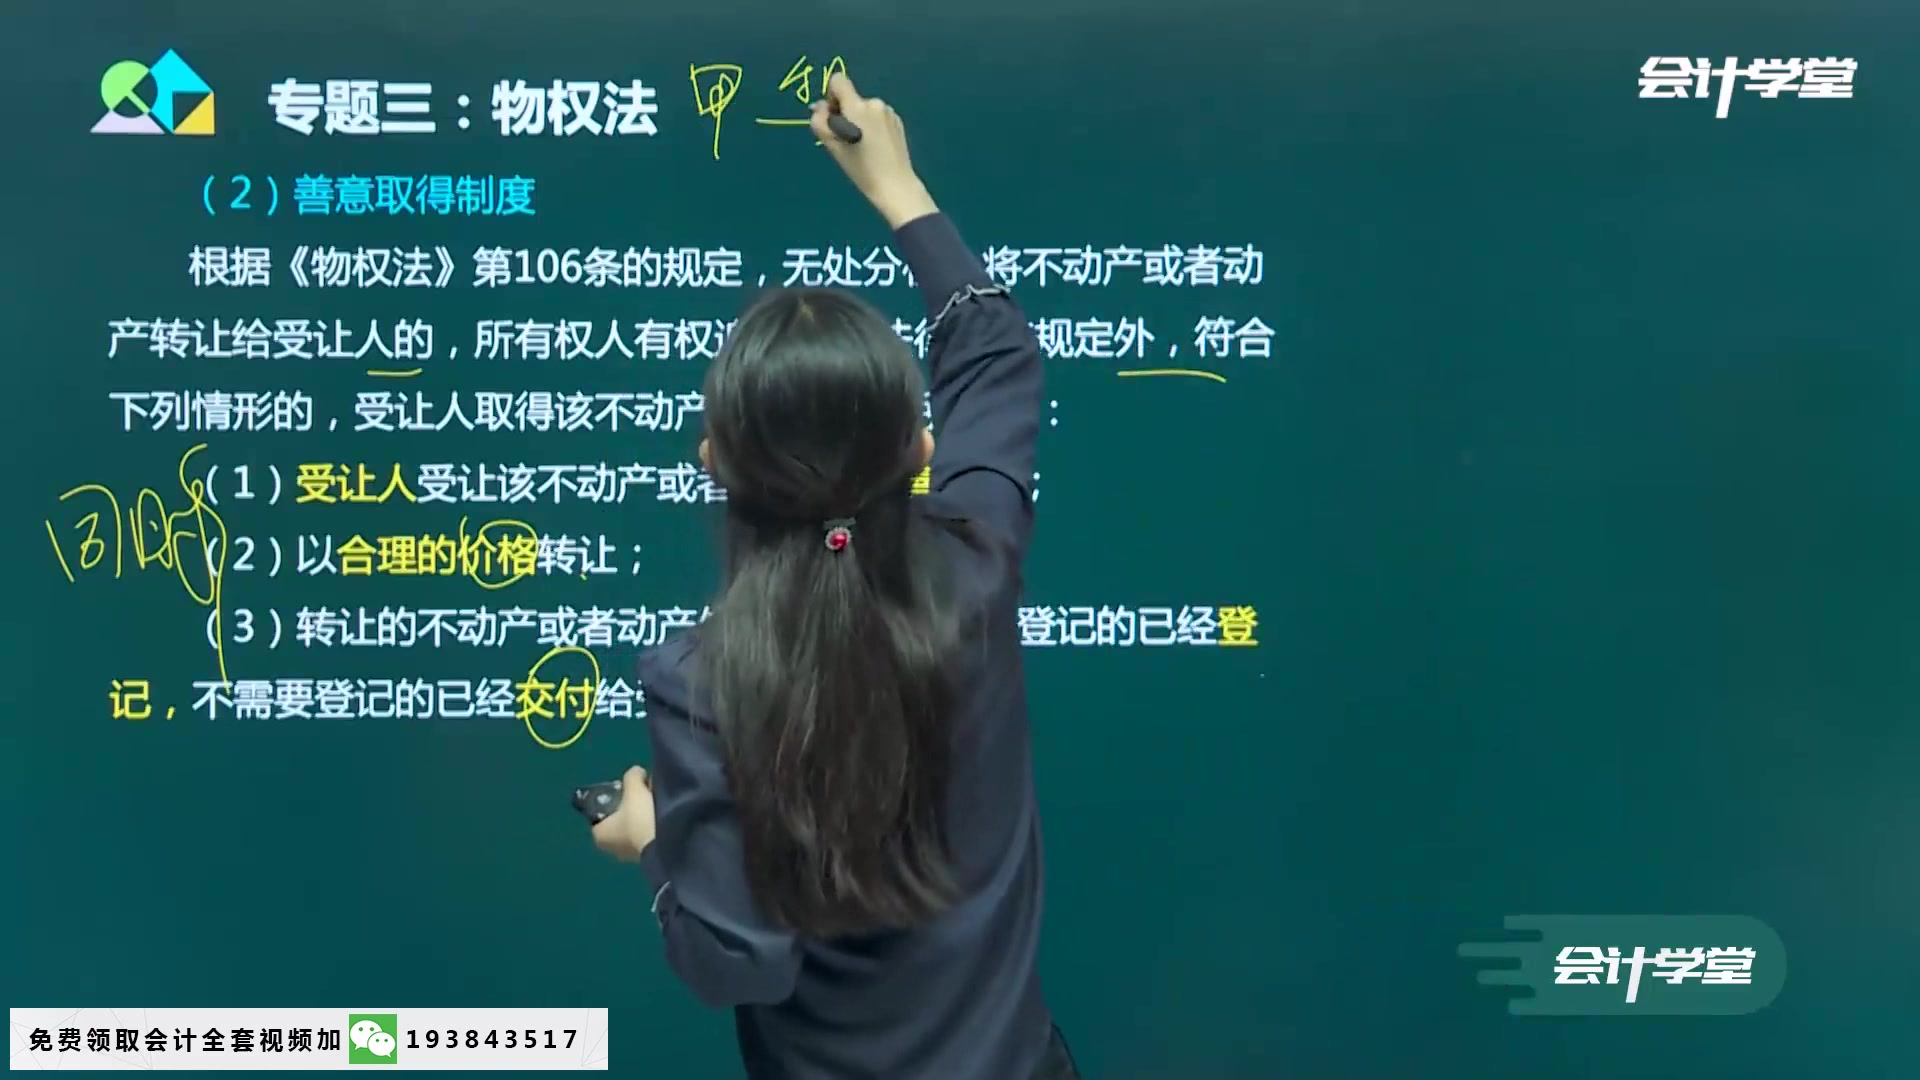 专题三：物权法 甲 租
会计学堂
（2）善意取得制度
根据《物权法》第106条的规定，无处分 将不动产或者动
产转让给受让人的，所有权人有权 规定外，符合
下列情形的，受让人取得该不动产 ：
（1）受让人受让该不动产或者 ；
同时
（2）以合理的价格转让；
（3）转让的不动产或者动产 登记的已经登
记，不需要登记的已经交付给
会计学堂
免费领取会计全套视频加 193843517